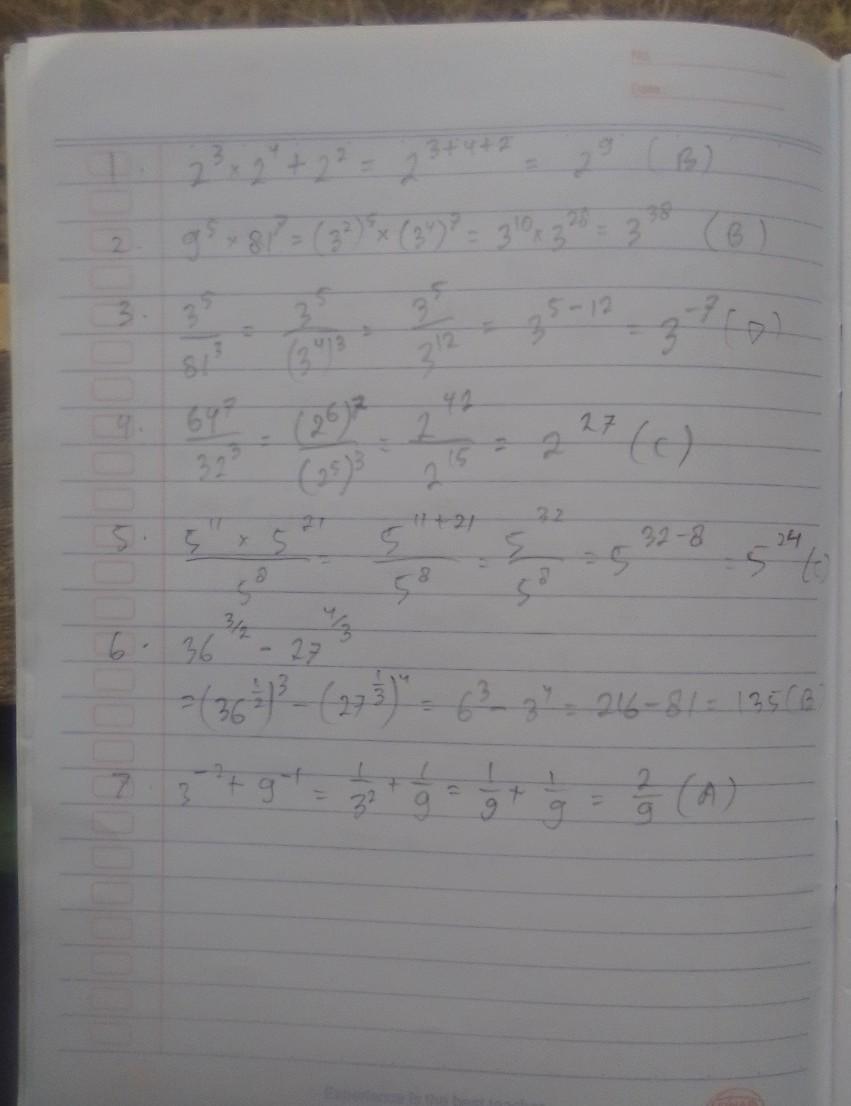 No.
Date
1. 2³ × 2⁴ + 2² = 2³⁺⁴⁺² = 2⁹ (B)
2. 9⁵ × 81⁷ = (3²)⁵ × (3⁴)⁷ = 3¹⁰ × 3²⁸ = 3³⁸ (B)
3. 3⁵/81³ = 3⁵/(3⁴)³ = 3⁵/3¹² = 3⁵⁻¹² = 3⁻⁷ (D)
4. 64⁷/32³ = (2⁶)⁷/(2⁵)³ = 2⁴²/2¹⁵ = 2²⁷ (C)
5. 5¹¹ × 5²¹/5⁸ = 5¹¹⁺²¹/5⁸ = 5³²/5⁸ = 5³²⁻⁸ = 5²⁴ (C)
6. 36^3/2 - 27^4/3
= (36^1/2)³ - (27^1/3)⁴ = 6³ - 3⁴ = 216 - 81 = 135 (B)
7. 3⁻² + 9⁻¹ = 1/3² + 1/9 = 1/9 + 1/9 = 2/9 (A)
Experience is the best teacher